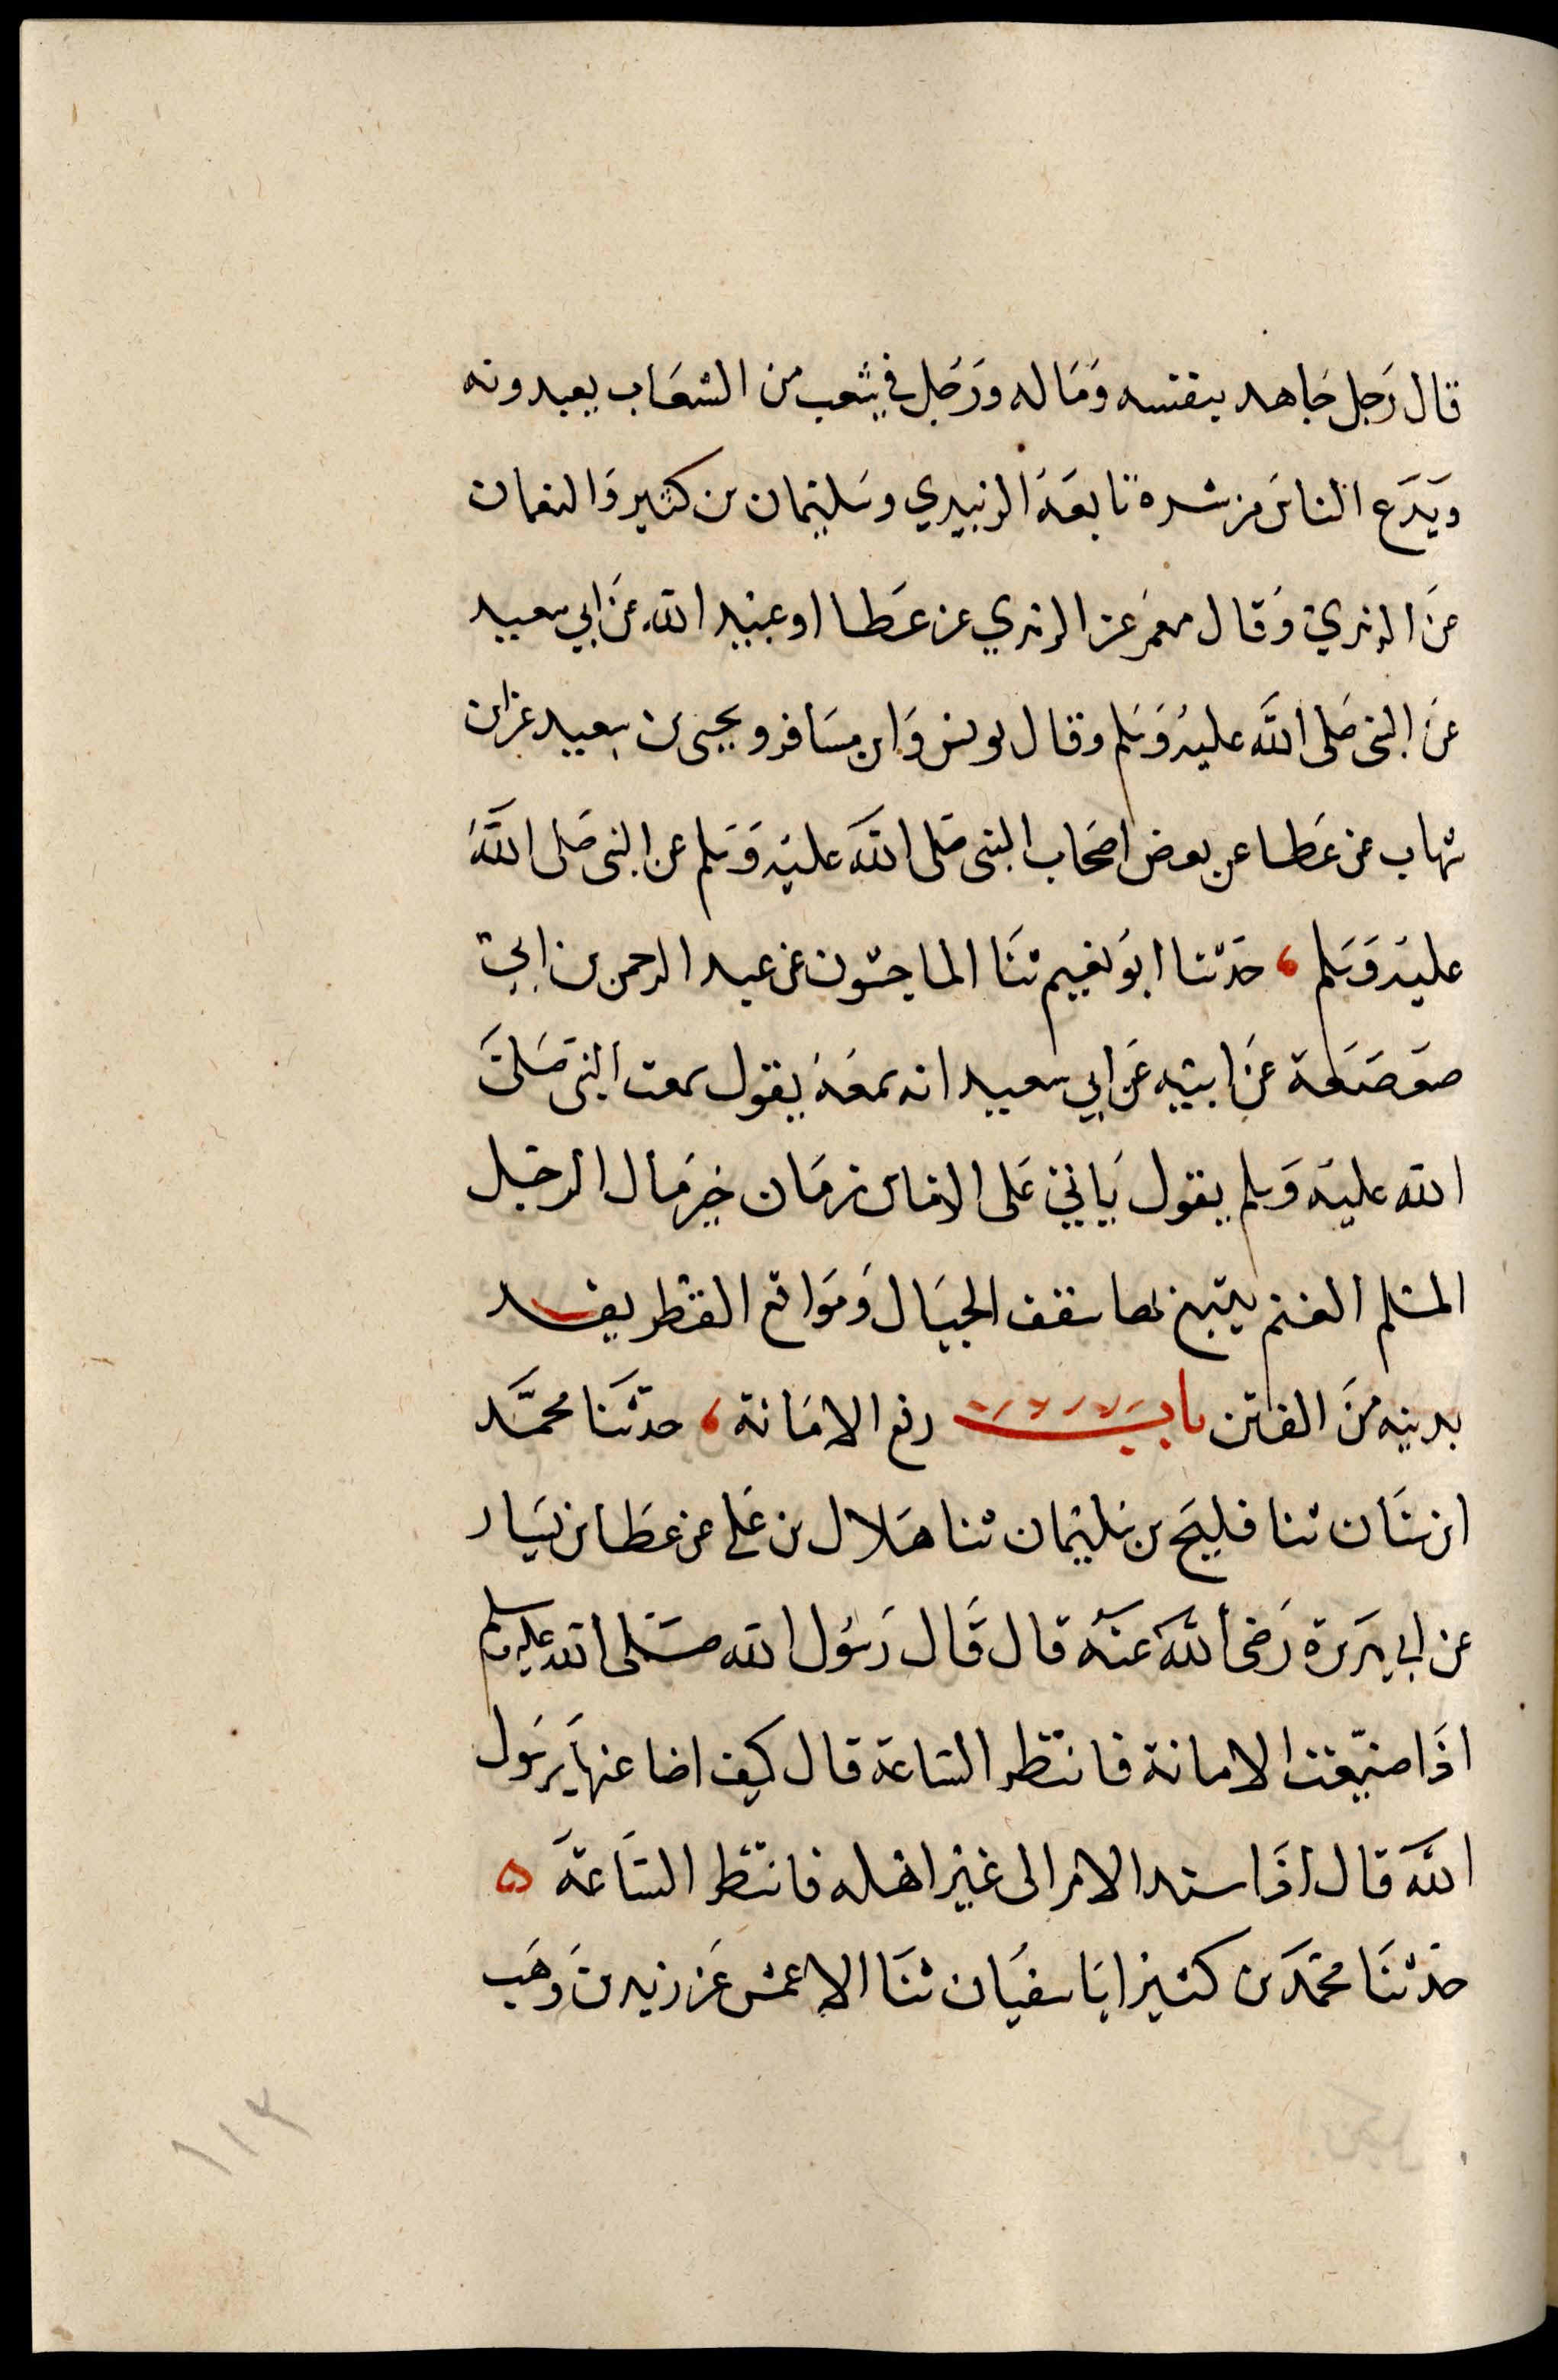 قال رَجل جَاهد بنفسه وَمَاله ورَجُل في شعب من الشعَاب يعبد ربه
وَيَدَع الناسَ من شره تابعَهُ الزبيدي وسَليمان بن كثير وَالنعمان
عَن الزهري وَقال معمَر عن الزهري عن عَطا او عبيد الله عَن ابي سعيد
عَن النبي صَلى اللَّه عليهُ وَسَلم وقال يونس وَابن مسَافر ويحيى بن سعيد عن ابن
شهاب عن عَطا عن بعض اصحَاب النبي صَلى اللَّه عليهُ وَسَلم عن النبي صَلى اللَّهُ
عليهُ وَسَلم ، حَدثنا ابوُ نعيم ثنَا الماجشون عن عبد الرحمن بن ابي
صعَصَعَة عَن ابيه عَن ابي سعيد انه سمعَهُ يقول سمعت النبي صَلى
الله عليهُ وَسلم يقول يَاتي عَلى الناس زمَان خير مَال الرجل
المسلم الغنم يتبع بها شعف الجبَال وَموَاقع القطر يفر
بدينه منَ الفتن باب رفع الامَانة ، حدثنَا محمَّد
ابن سنَان ثنا فليح بن سَليمان ثنا هَلال بن عَلي عن عطَا بن يسَار
عن ابي هريرة رَضي اللَّه عنهُ قال قَال رَسُول الله صَلى الله عليه وسلم
اذَا ضيّعت الامانة فانتظر السَاعة قال كيف اضاعتها يَرسَول
اللَّه قال اذَا اسند الامر الى غيرَ اهله فانتظر السَاعَة ه
حَدثنَا محمَّد بن كثير انا سفيَان ثنَا الاعمش عَن زيد بن وَهَب
١١٢